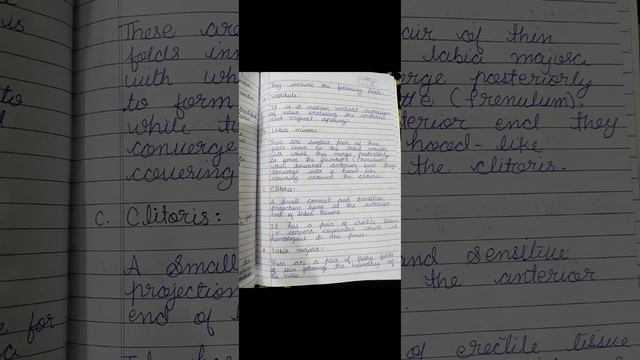 They include the following parts.
vestibule:
It is a median vertical depression
of vulva enclosing the urethral
and vaginal opening.
Labia minora:
These are another pair of thin
folds inner to the labia majora
with which they merge posteriorly
to form the (frenulum),
while toward anterior end they
converge into a hood-like
covering around the clitoris.
C. Clitoris:
A small conical and sensitive
projection lying at the anterior
end of labia minora
It has a pair of erectile tissue
i.e corpora cavernosa which is
homologous to the penis.
Labia majora:
These are a pair of fleshy folds
of skin forming the boundary of
the vulva
These are
folds inn
with wh
to form
while to
converge
covering
C. Clitoris:
A small
projection
end of
air of thin
labia majora
rge posteriorly
(frenulum),
terior end they
hood-like
the clitoris.
and sensitive
the anterior
of erectile tissue